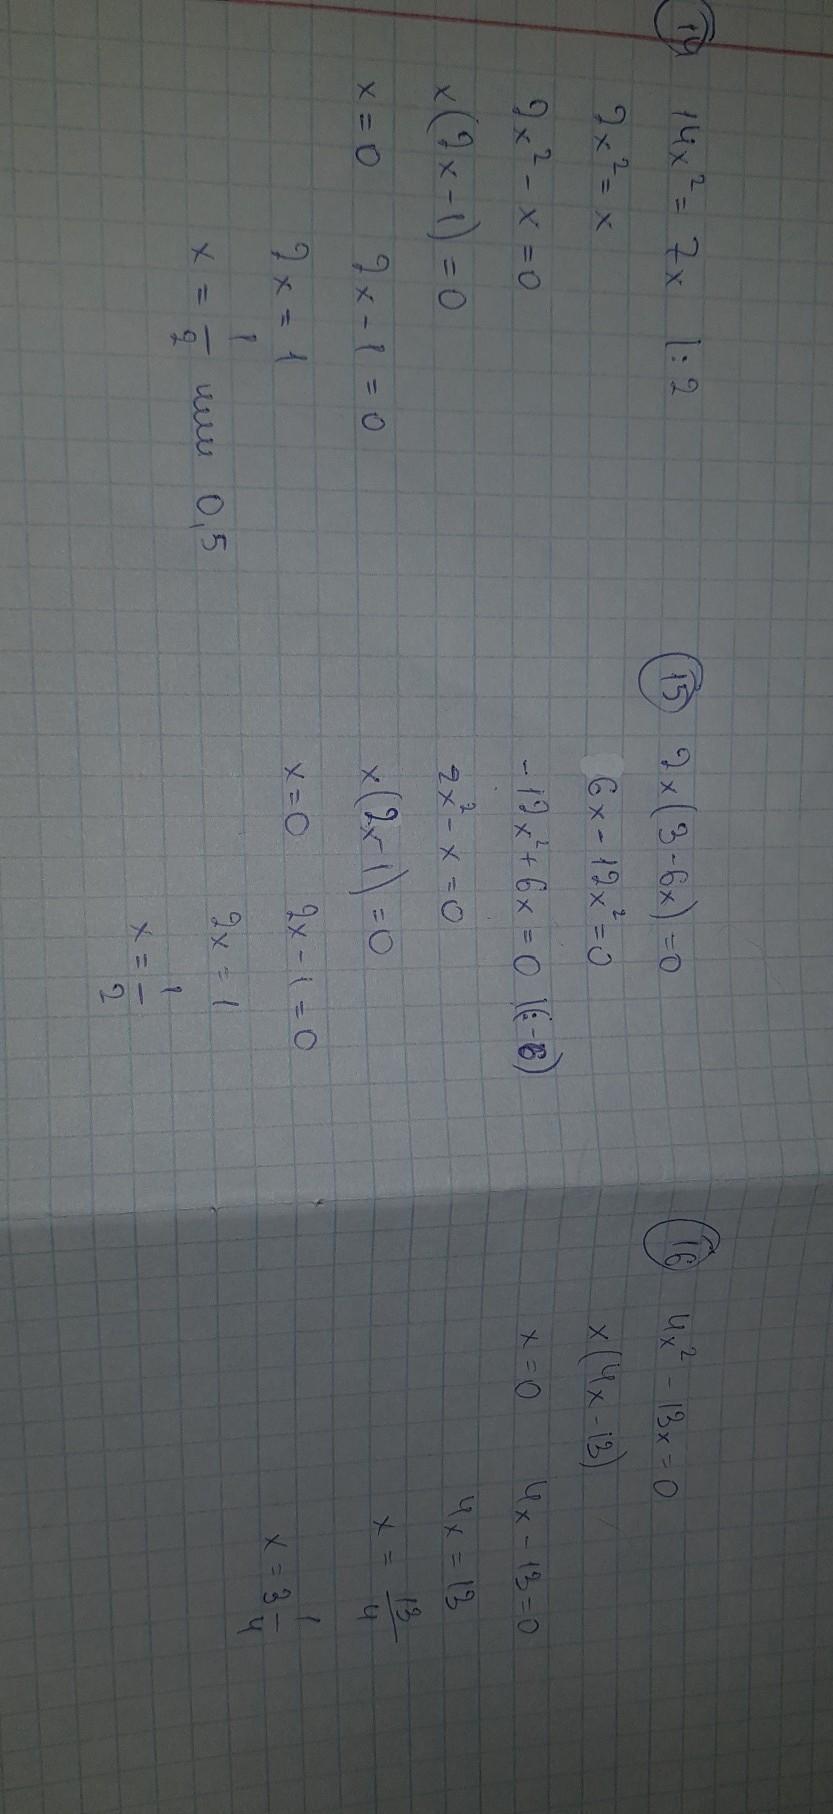 14
14x² = 7x |:2
2x² = x
2x² - x = 0
x(2x-1) = 0
x = 0 2x - 1 = 0
2x = 1
x = 1/2 или 0,5
15
2x(3-6x) = 0
6x - 12x² = 0
-12x² + 6x = 0 |(:-6)
2x² - x = 0
x(2x-1) = 0
x = 0 2x - 1 = 0
2x = 1
x = 1/2
16
4x² - 13x = 0
x(4x-13)
x = 0 4x - 13 = 0
4x = 13
x = 13/4
x = 3 1/4